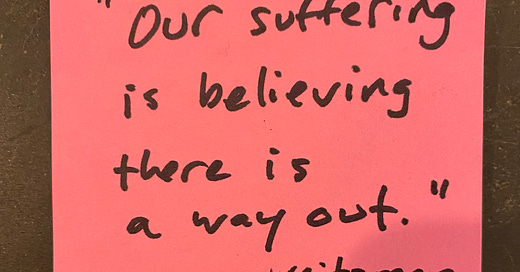 "Our suffering
is believing
there is
a way out."